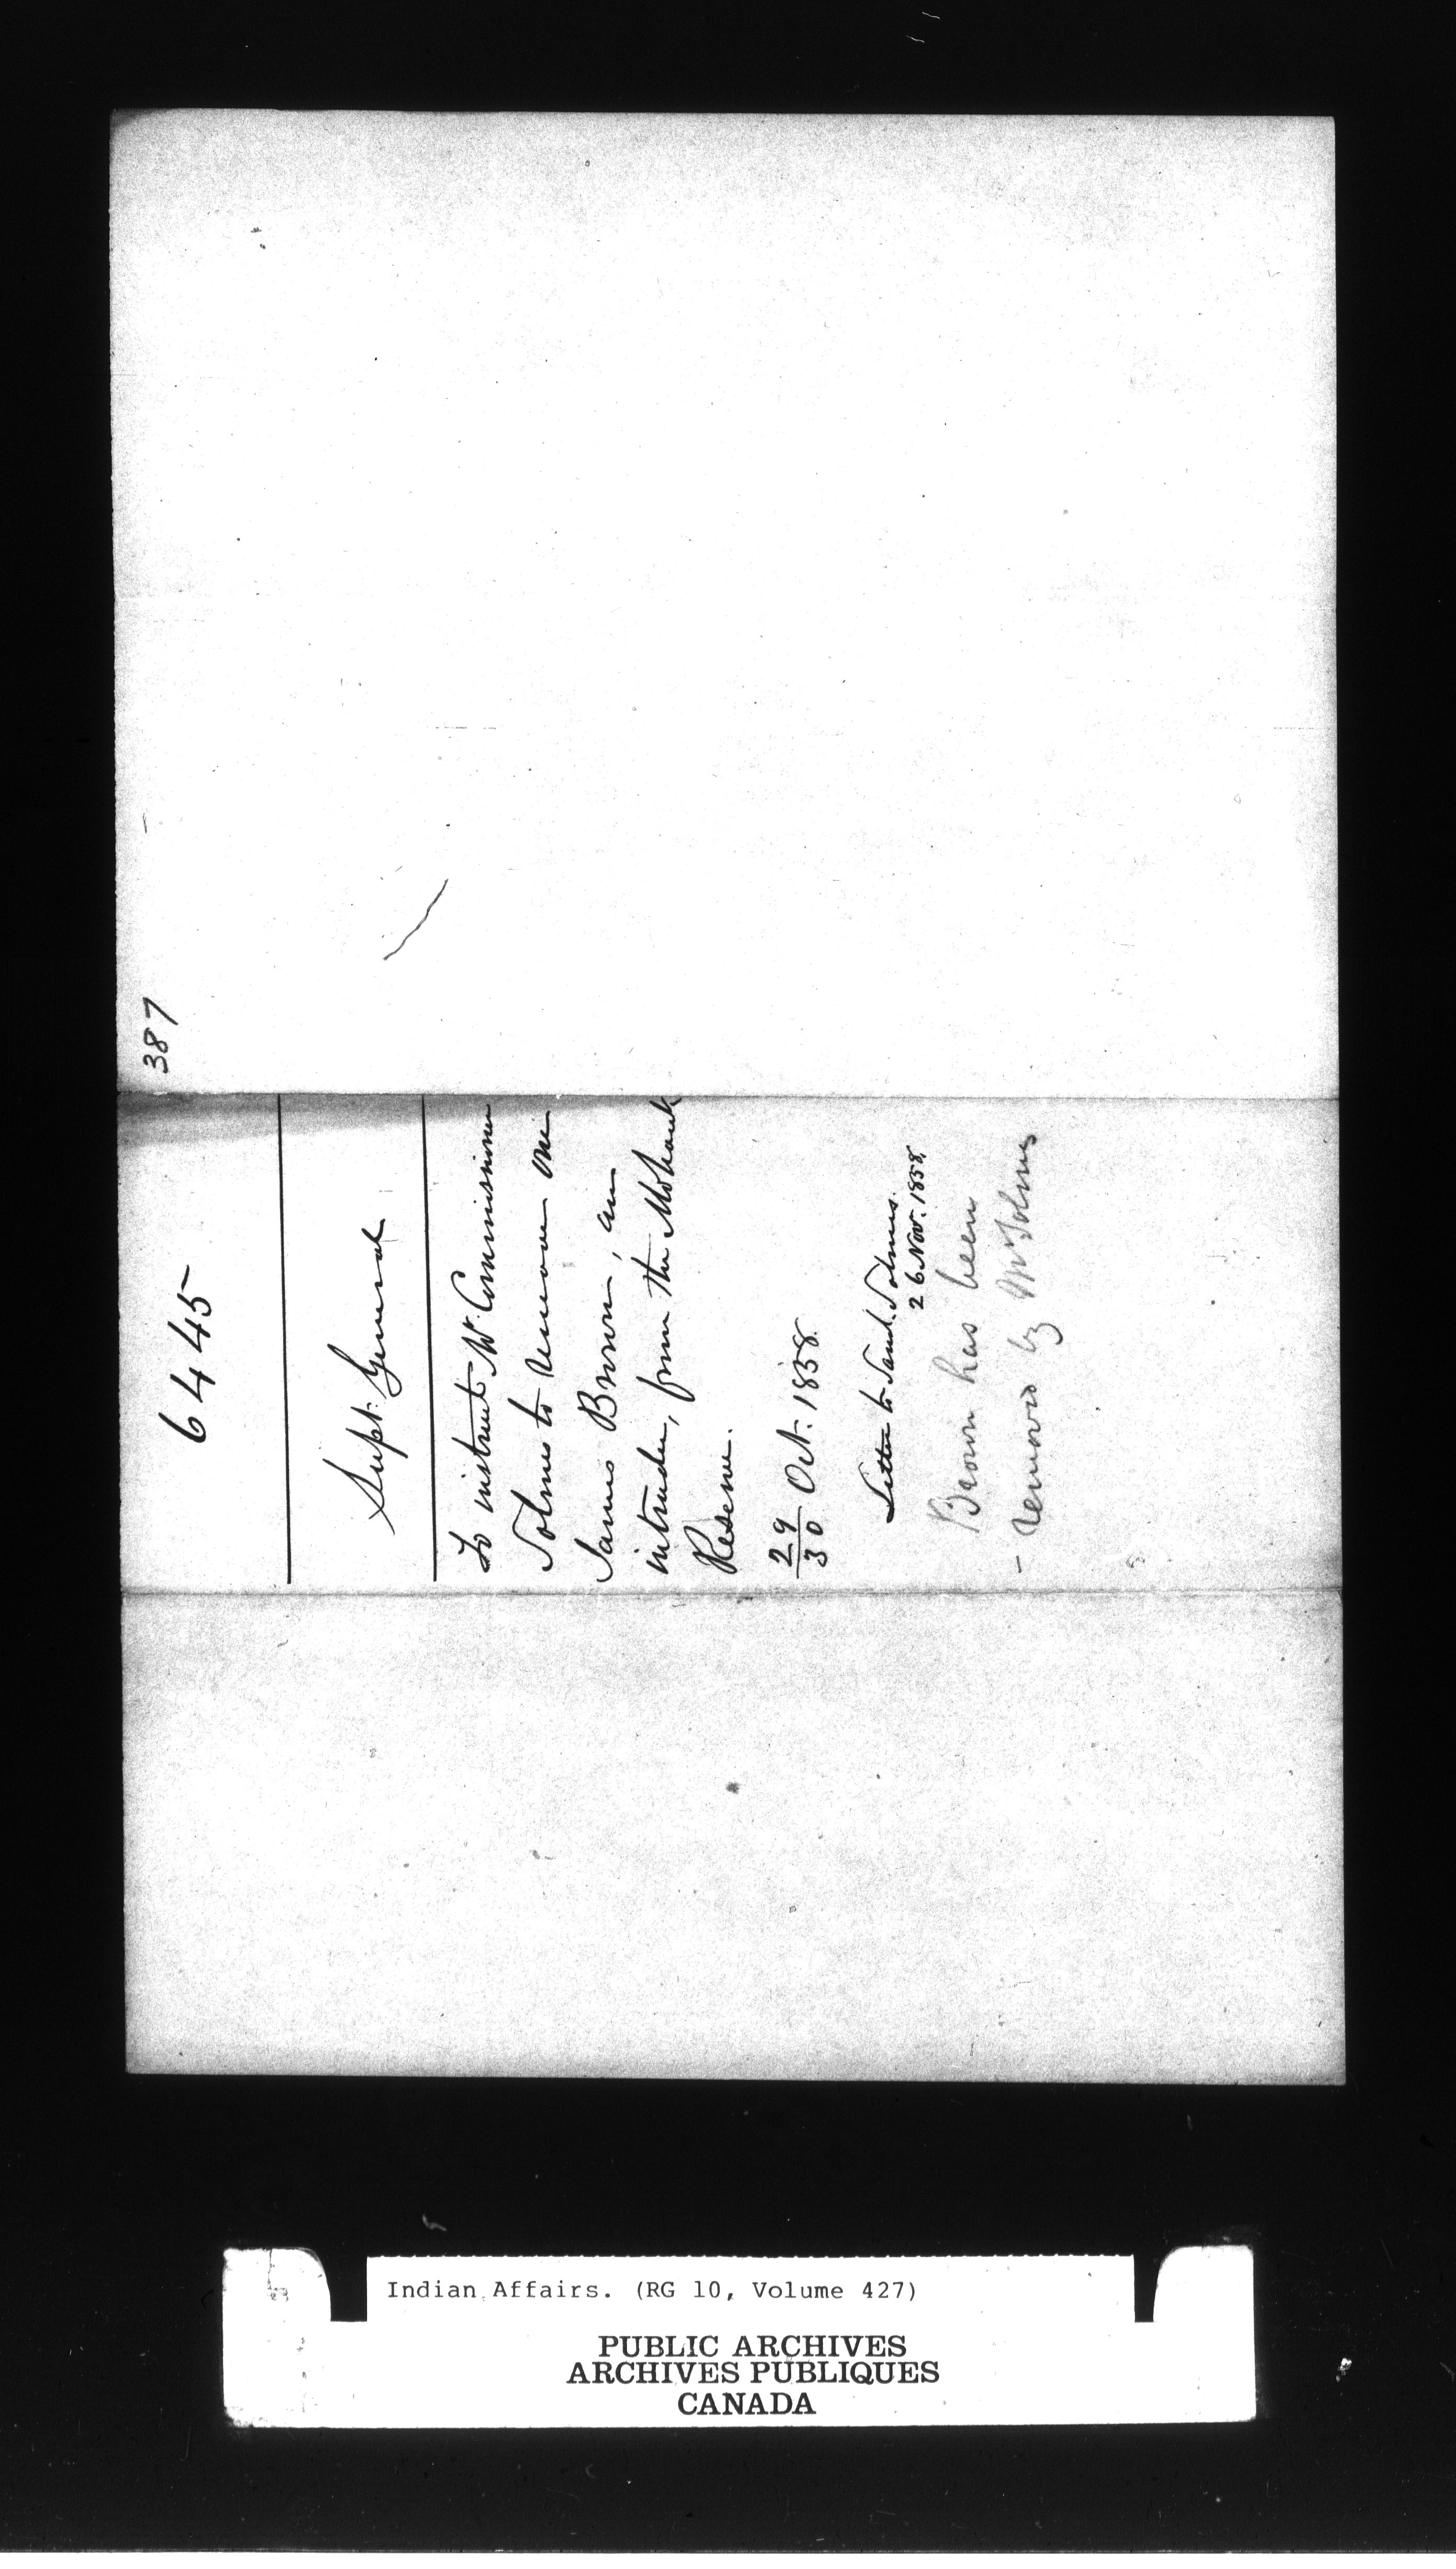 387
6445
Supt. General
To instruct Mr. Commissioner
Holmes to remove one
James Brown, an
intruder, from the Mohawk
Reserve.
29
30 Oct. 1858.
Letter to Saml. Holmes.
26 Nov. 1858.
Brown has been
- removed by Mr Holmes
Indian Affairs. (RG 10, Volume 427)
PUBLIC ARCHIVES
ARCHIVES PUBLIQUES
CANADA